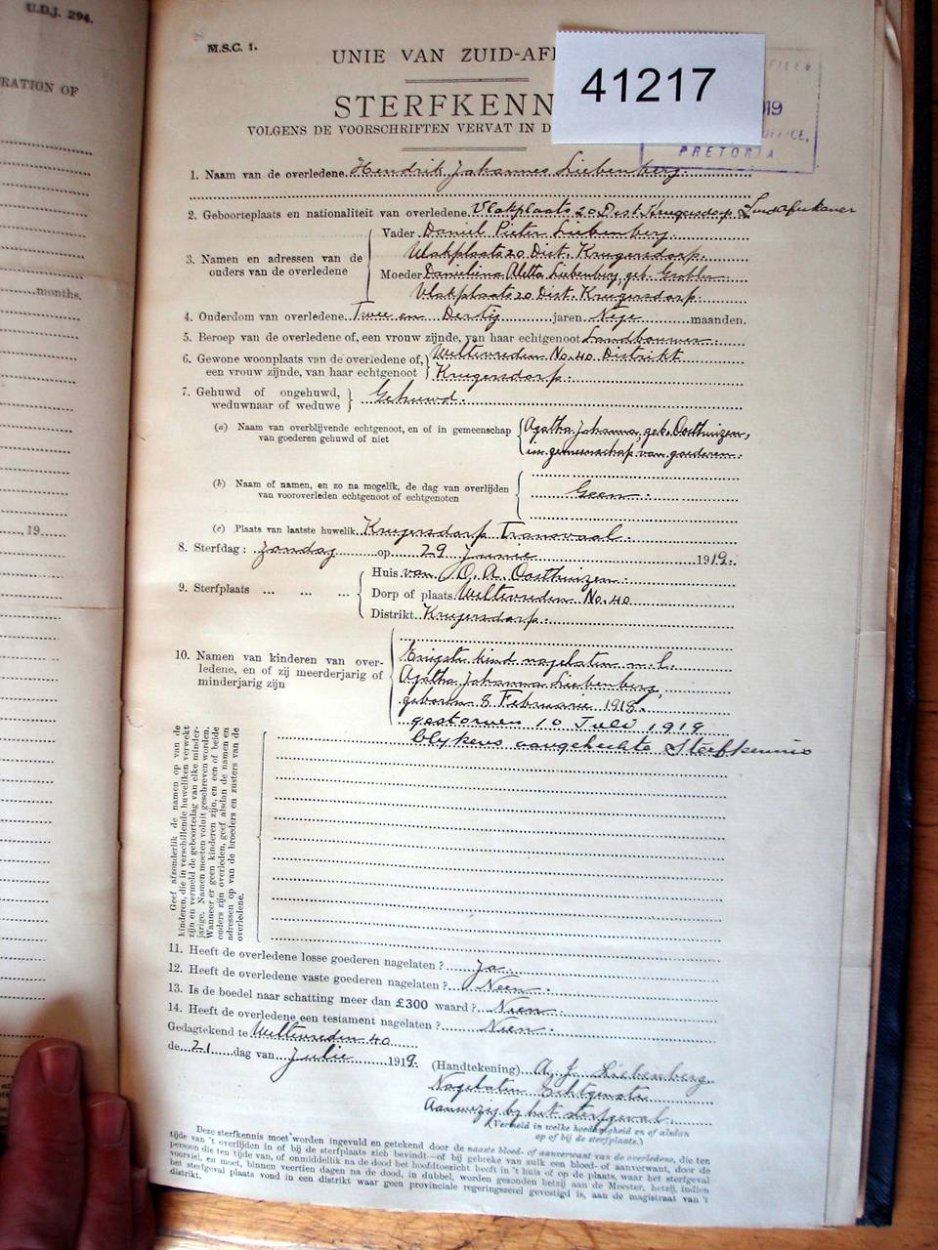 U.D.J. 294.
RATION OF
months.
19
M.S.C. 1.
UNIE VAN ZUID-AF
41217
STERFKENN
VOLGENS DE VOORSCHRIFTEN VERVAT IN D
19
PRETORIA
1. Naam van de overledene Hendrik Johannes Liebenberg
2. Geboorteplaats en nationaliteit van overledene Vlakplaats 20 Dist. Krugersdorp
3. Namen en adressen van de ouders van de overledene
Vader Daniel Pieter Liebenberg.
Vlakplaats 20 Dist. Krugersdorp.
Moeder Danielina Aletta Liebenberg, geb. Grobler
Vlakplaats 20 Dist. Krugersdorp.
4. Ouderdom van overledene Twee en Dertig jaren Nege maanden.
5. Beroep van de overledene of, een vrouw zijnde, van haar echtgenoot Landbouwer.
6. Gewone woonplaats van de overledene of, een vrouw zijnde, van haar echtgenoot
Weltevreden No. 40 Distrikt
Krugersdorp.
7. Gehuwd of ongehuwd, weduwnaar of weduwe
Gehuwd.
(a) Naam van overblijvende echtgenoot, en of in gemeenschap van goederen gehuwd of niet
Agatha Johanna, geb. Oosthuizen,
in gemeenschap van goederen.
(b) Naam of namen, en zo na mogelik, de dag van overlijden van vooroverleden echtgenoot of echtgenoten
Geen.
(c) Plaats van laatste huwelik Krugersdorp Transvaal.
8. Sterfdag: Zondag op 29 Junie 1919.
9. Sterfplaats ... ... ...
Huis van O. A. Oosthuizen.
Dorp of plaats Weltevreden No. 40
Distrikt Krugersdorp.
10. Namen van kinderen van overledene, en of zij meerderjarig of minderjarig zijn
Enigste kind nagelaten n.l.
Agatha Johanna Liebenberg,
geboren 8 Februarie 1918.
gestorwen 10 Julv 1919
blykens aangehechte Sterfkennis
Geef afzonderlik de namen op van de
kinderen, die in verschillende huweliken verwekt
zijn en vermeld de geboortedag van elke minder-
jarige. Namen moeten voluit geschreven worden.
Wanneer er geen kinderen zijn, en een of beide
ouders zijn overleden, geef alsdan de namen en
adressen op van de broeders en zusters van de
overledene.
11. Heeft de overledene losse goederen nagelaten? Ja
12. Heeft de overledene vaste goederen nagelaten? Neen.
13. Is de boedel naar schatting meer dan £300 waard? Nien
14. Heeft de overledene een testament nagelaten? Nien.
Gedagtekend te Weltevreden 40
de 21 dag van Julie 1919.
(Handtekening) A. J. Liebenberg
Nagelaten Echtgenote
Aanwezig bij het sterfgeval
(Vermeld in welke hoedanigheid en of alsdan
op of bij de sterfplaats.)
Deze sterfkennis moet worden ingevuld en getekend door de naaste bloed- of aanverwant van de overledene, die ten
tijde van 't overlijden in of bij de sterfplaats zich bevindt—of bij gebreke van zulk een bloed- of aanverwant, door de
persoon die ten tijde van, of onmiddellik na de dood het hoofdtoezicht heeft in 't huis of op de plaats, waar het sterfgeval
voorviel, en moet, binnen veertien dagen na de dood, in dubbel, worden gezonden hetzij aan de Meester, hetzij, indien
het sterfgeval plaats vond in een distrikt waar geen provinciale regeringszetel gevestigd is, aan de magistraat van 't
distrikt.